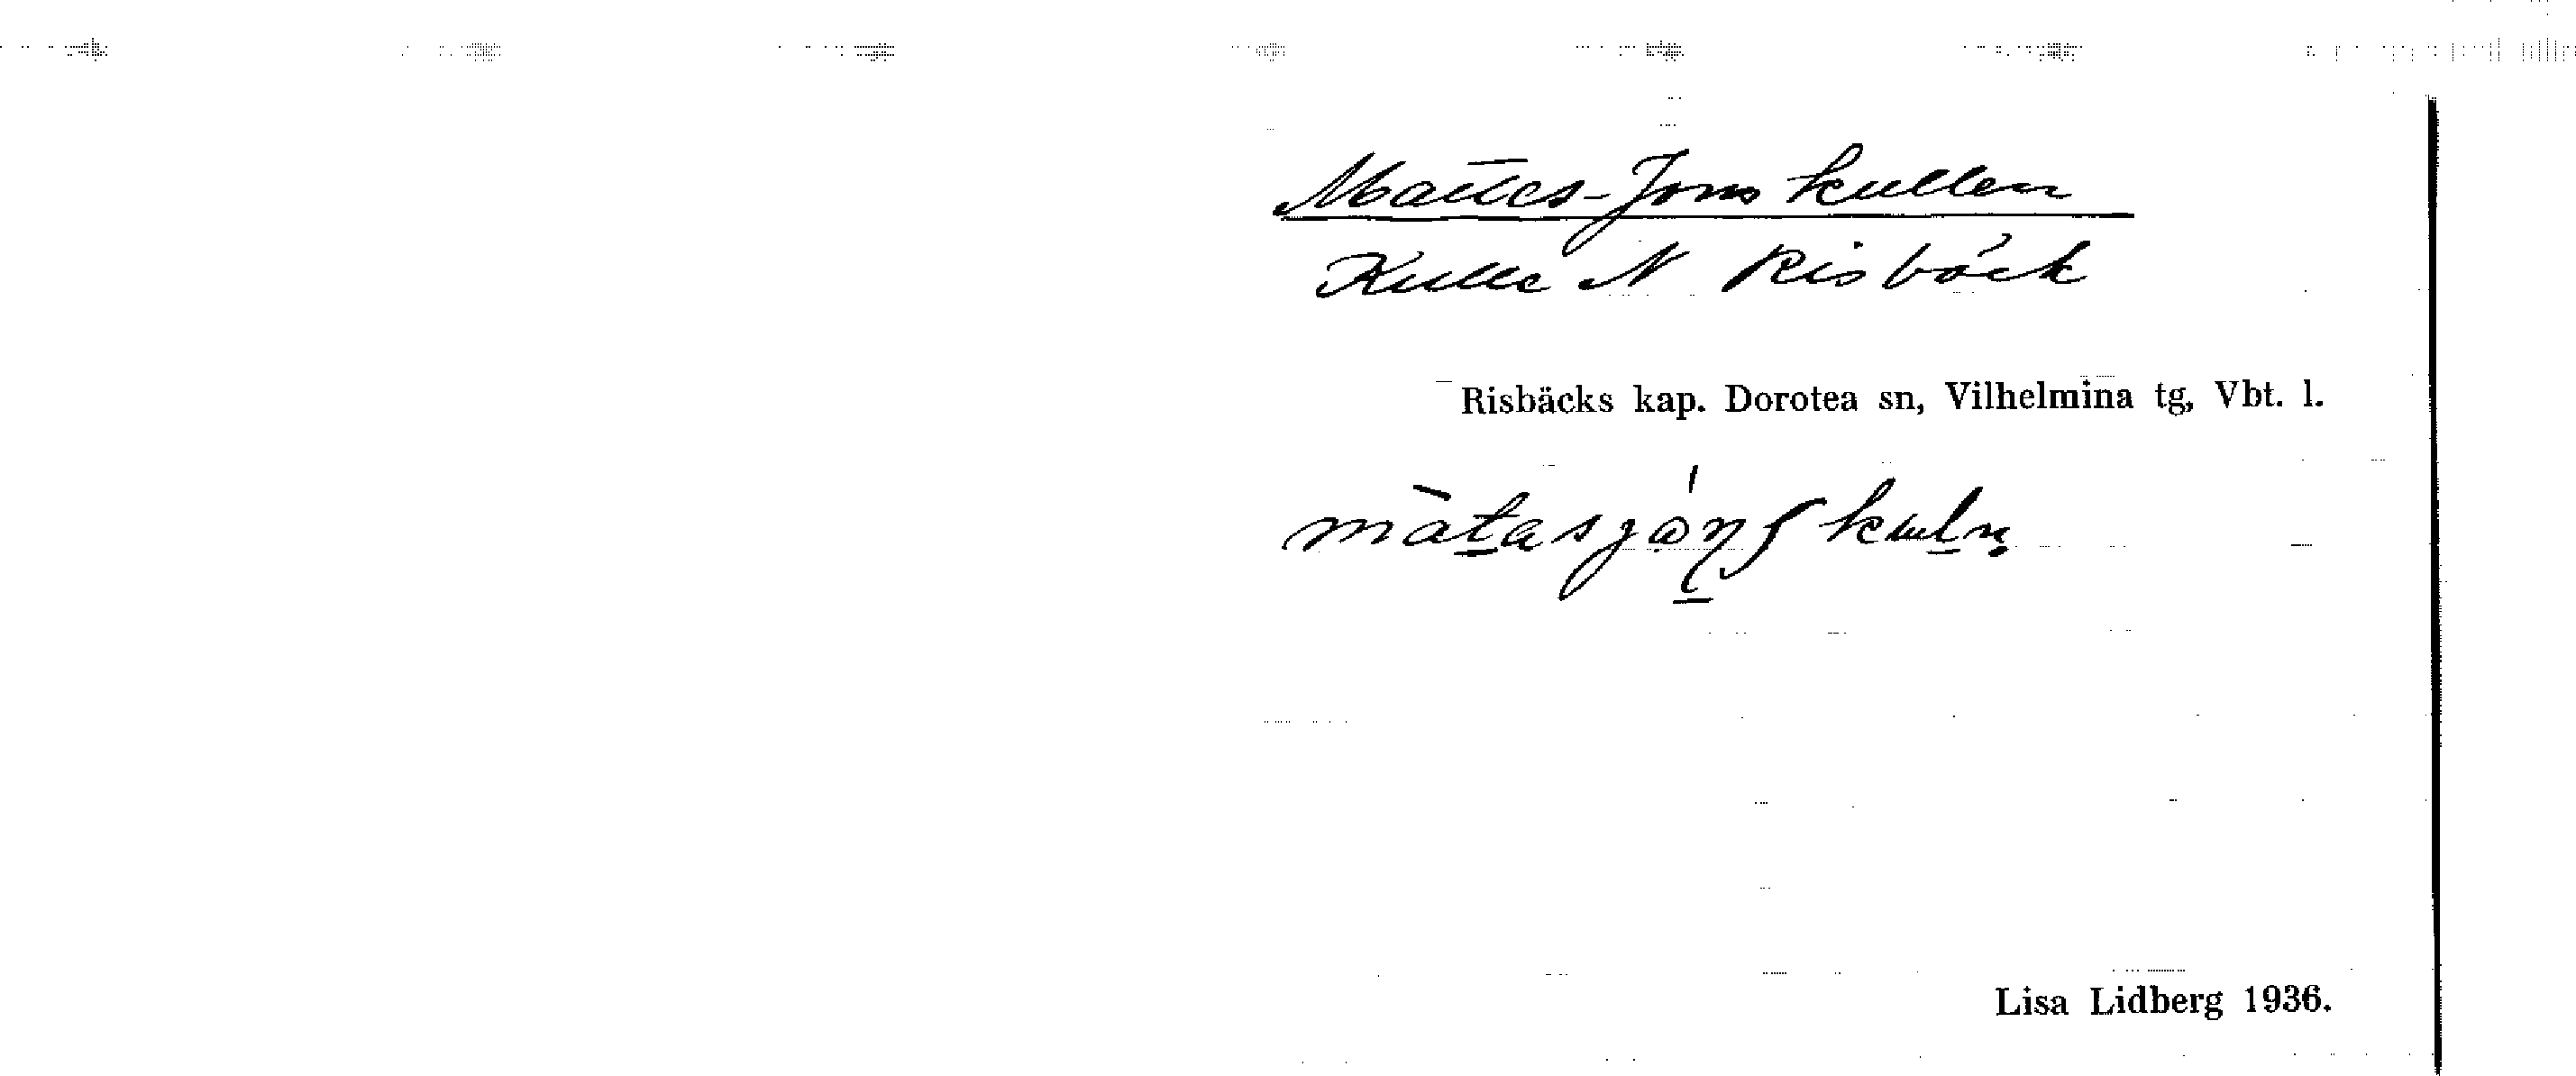 Mattes-Jons kullen
Kulle N Risbäck
Risbäcks kap. Dorotea sn, Vilhelmina tg, Vbt. l.
Lisa Lidberg 1936.